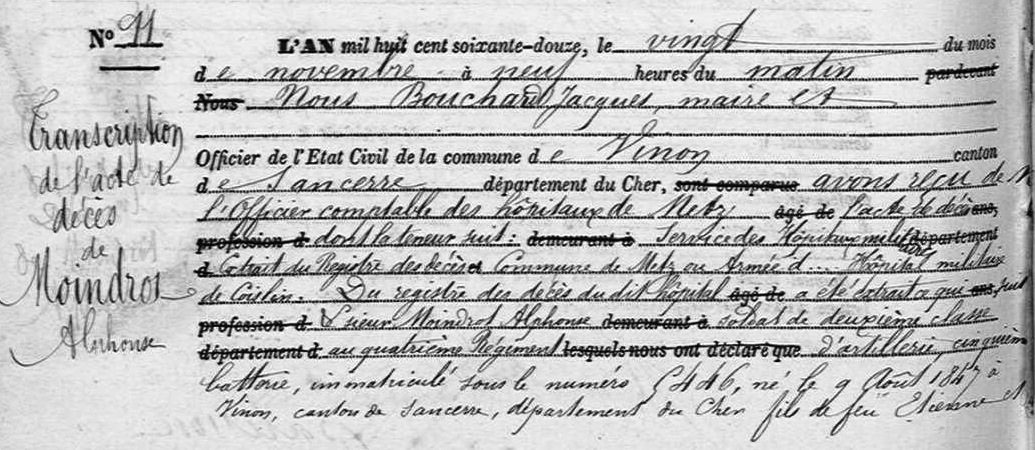 No 91
Transcription
de l'acte de
décès
de
Moindrot
Alphonse
L'AN mil huit cent soixante-douze, le vingt du mois
de novembre à neuf heures du matin pardevant
Nous Nous Bouchard Jacques, maire et
Officier de l'Etat Civil de la commune de Vinon canton
de Sancerre département du Cher, sont comparus avons reçu de M
l'Officier comptable des hôpitaux de Metz âgé de l'acte de décès ans,
profession d dont la teneur suit : demeurant à Service des Hôpitaux militaires département
d Extrait du Registre des décès Commune de Metz ou Armée d... Hôpital militaire
de Coislin. Du registre des décès du dit hôpital âgé de a été extrait ce que ans, suit
profession d Le sieur Moindrot Alphonse demeurant à soldat de deuxième classe
département d au quatrième Régiment lesquels nous ont déclaré que d'artillerie, cinquième
batterie, immatriculé sous le numéro 5446, né le 9 Août 1847 à
Vinon, canton de Sancerre, département du Cher fils de feu Etienne et